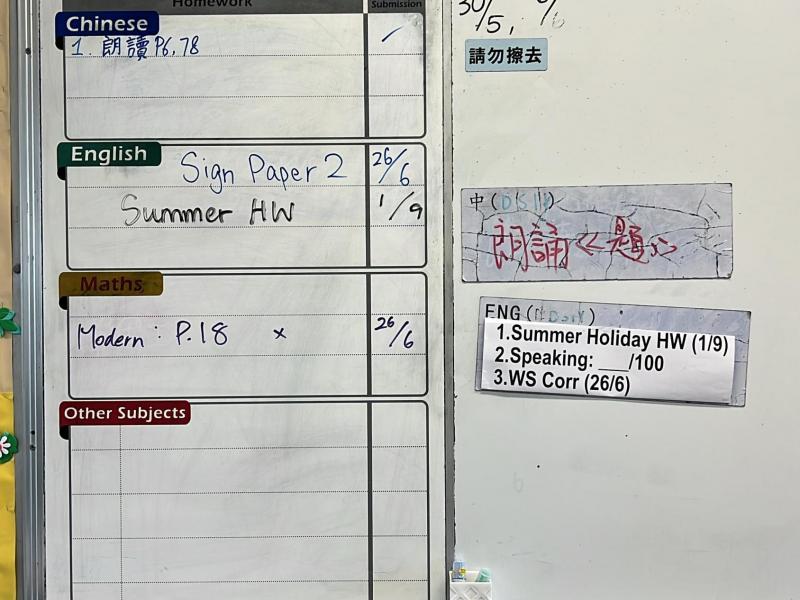 Homework
Submission
Chinese
1. 朗讀 P6,78
English
Sign Paper 2 26/6
Summer HW 1/9
Maths
Modern: P.18 × 26/6
Other Subjects
30/5,
請勿擦去
中(
朗誦<<題>>
ENG(
1.Summer Holiday HW (1/9)
2.Speaking: ___/100
3.WS Corr (26/6)